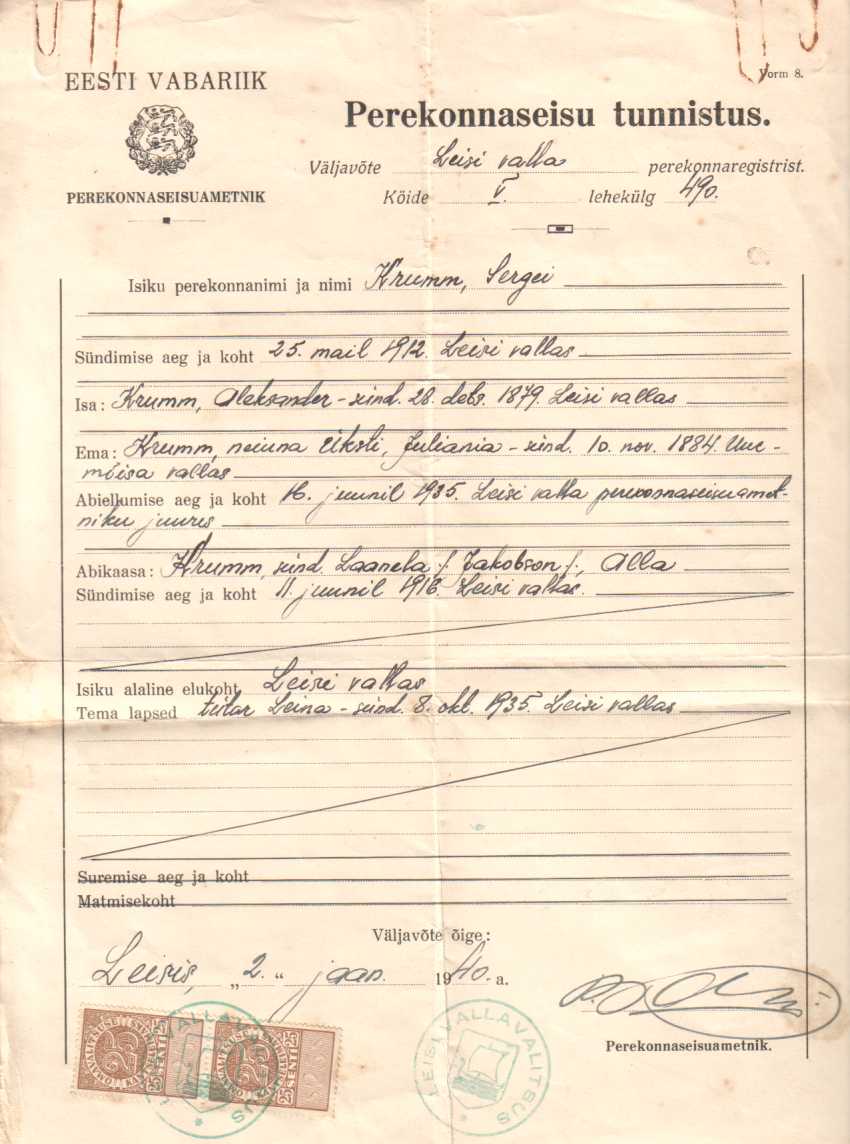 Vorm 8.
EESTI VABARIIK
PEREKONNASEISUAMETNIK
Perekonnaseisu tunnistus.
Väljavõte Leisi valla perekonnaregistrist.
Köide V. lehekülg 490.
Isiku perekonnanimi ja nimi Krumm, Sergei
Sündimise aeg ja koht 25. mail 1912. Leisi vallas
Isa: Krumm, Aleksander – sünd. 28. dets. 1879. Leisi vallas
Ema: Krumm, neiuna Üksti, Juliania – sünd. 10. nov. 1884. Uue-
mõisa vallas
Abiellumise aeg ja koht 16. juunil 1935. Leisi valla perekonnaseisuamet-
niku juures
Abikaasa: Krumm, sünd. Laanela /Jakobson/, Alla
Sündimise aeg ja koht 11. juunil 1916. Leisi vallas.
Isiku alaline elukoht Leisi vallas
Tema lapsed tütar Leina – sünd. 8. okt. 1935. Leisi vallas
Suremise aeg ja koht
Matmisekoht
Väljavõte õige:
Leisis, „2.“ jaan. 1940. a.
Perekonnaseisuametnik.
25 SENTI 25
25 SENTI 25
LEISI VALLAVALITSUS